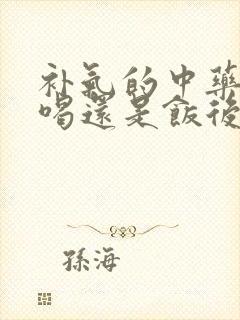 补氣的中藥
喝還是飯後
孫海